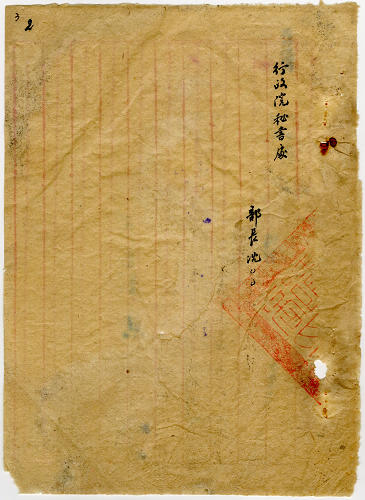 3
2
行政院秘書處
部長 沈